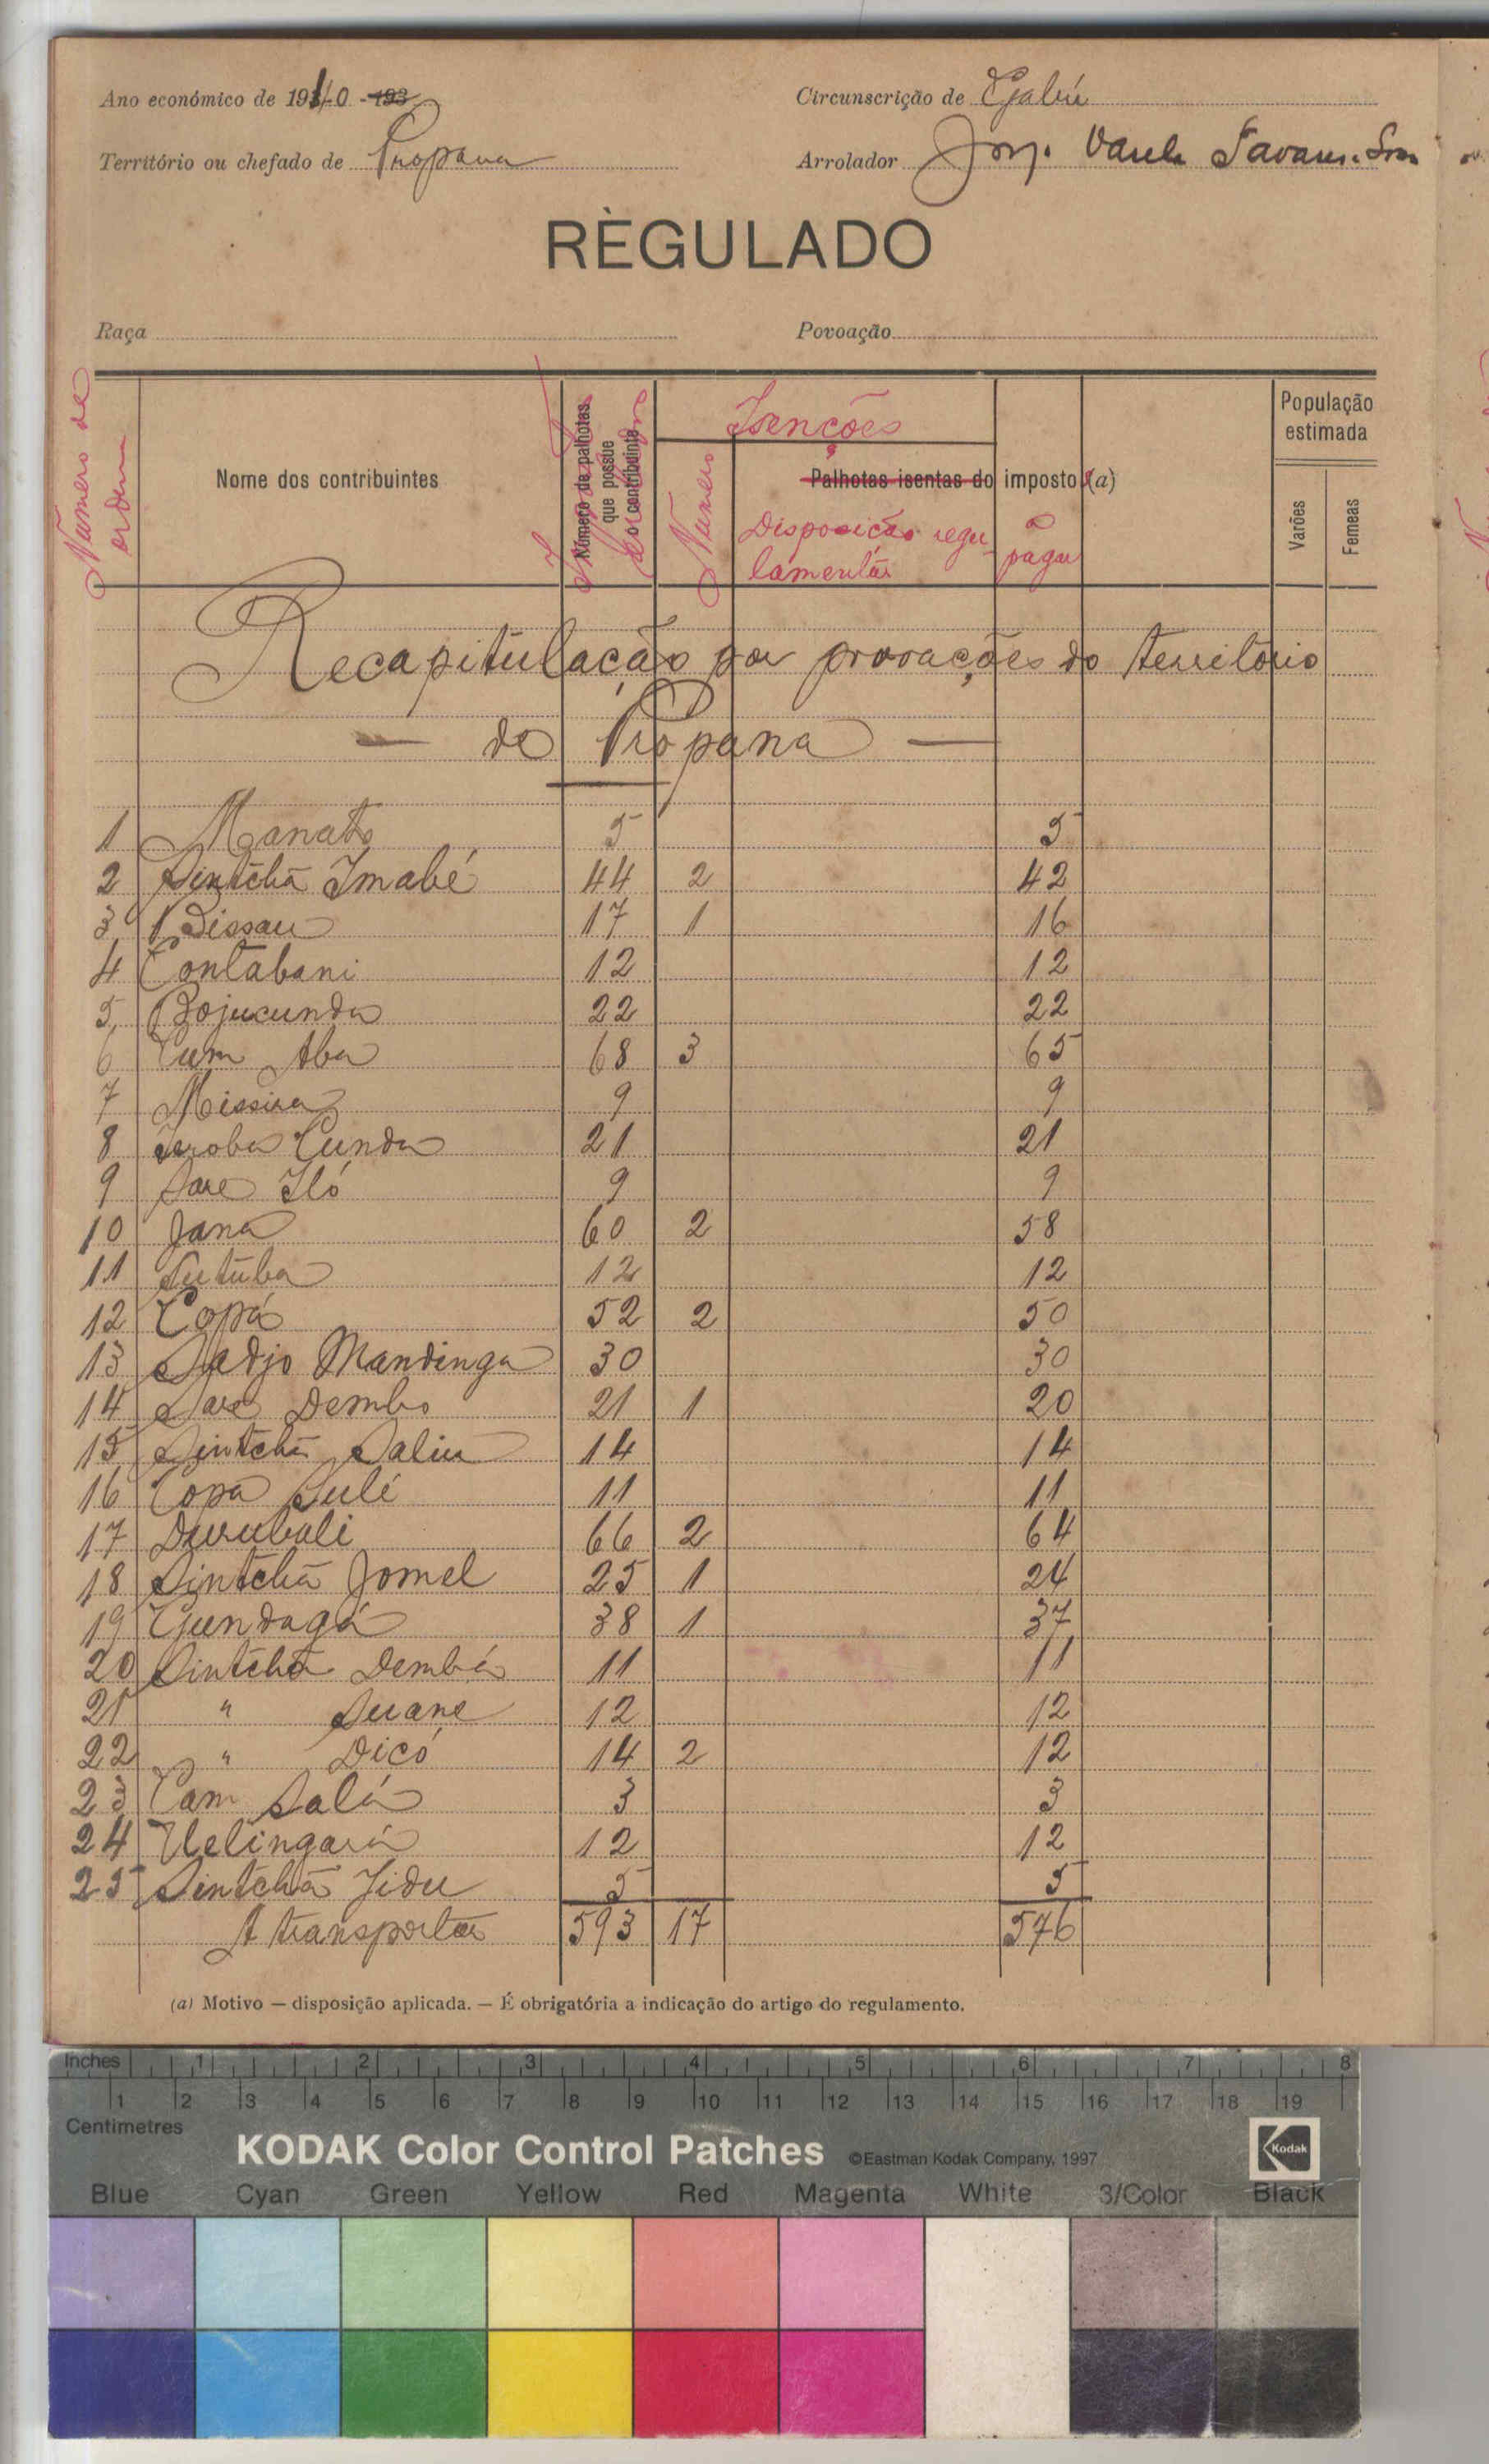 Ano económico de 1940 - 193
Circunscrição de Gabú
Território ou chefado de Propana
Arrolador Jorge Varela Tavares
RÈGULADO
Raça
Povoação
Numero de ordem
Nome dos contribuintes
Número de palhotas que possue o contribuinte
Isenções
Numero
Palhotas isentas do imposto (a)
Disposição regu-
lamentar
a pagar
População estimada
Varões
Femeas
Recapitulação por provações do território
— de Propana —
1 Manato 5 5
2 Sintchã Imabé 44 2 42
3 Bissau 17 1 16
4 Contabani 12 12
5 Bojucunda 22 22
6 Cum Aba 68 3 65
7 Missira 9 9
8 Seroba Cunda 21 21
9 Sare Iló 9 9
10 Jana 60 2 58
11 Sutuba 12 12
12 Copá 52 2 50
13 Sadjo Mandinga 30 30
14 Sare Dembo 21 1 20
15 Sintchã Saliu 14 14
16 Copa Sulé 11 11
17 Durubali 66 2 64
18 Sintchã Jomel 25 1 24
19 Gundagá 38 1 37
20 Sintchã Dembá 11 11
21 " Suane 12 12
22 " Dicó 14 2 12
23 Cam Salá 3 3
24 Uelingará 12 12
25 Sintchã Jidu 5 5
A transportar 593 17 576
(a) Motivo — disposição aplicada. — É obrigatória a indicação do artigo do regulamento.
Inches 1 2 3 4 5 6 7 8
1 2 3 4 5 6 7 8 9 10 11 12 13 14 15 16 17 18 19
Centimetres
KODAK Color Control Patches ©Eastman Kodak Company, 1997 Kodak
Blue Cyan Green Yellow Red Magenta White 3/Color Black